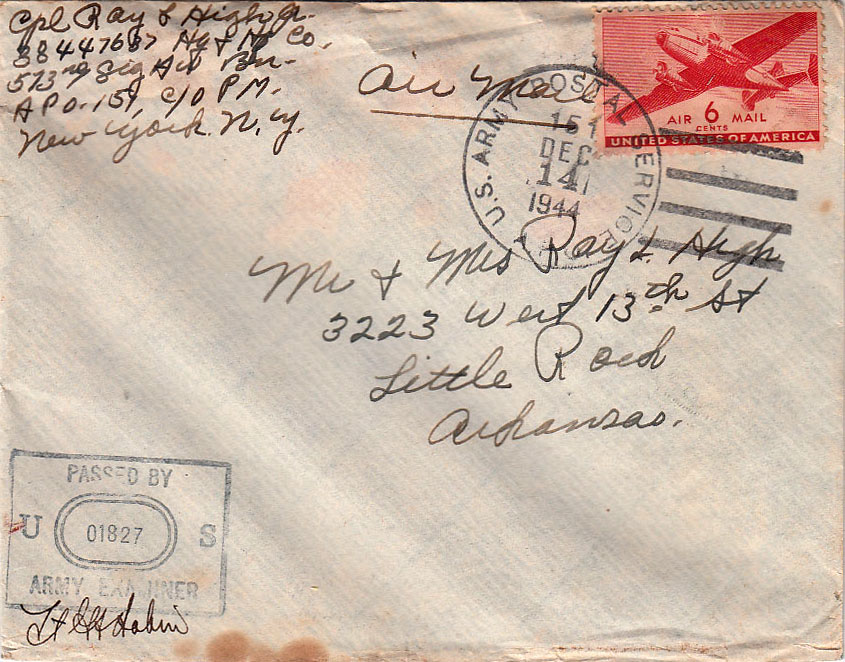 Cpl Ray L High Jr.
38447687 Hq & Hq Co.
573rd Sig AW Bn.
A.P.O. 151, C/O P.M.
New York. N.Y.
Air Mail
AIR 6 MAIL
CENTS
UNITED STATES OF AMERICA
U.S. ARMY POSTAL SERVICE
151
DEC
14
1944
Mr & Mrs Ray L High
3223 West 13th St
Little Rock
Arkansas.
PASSED BY
U 01827 S
ARMY EXAMINER
Lt